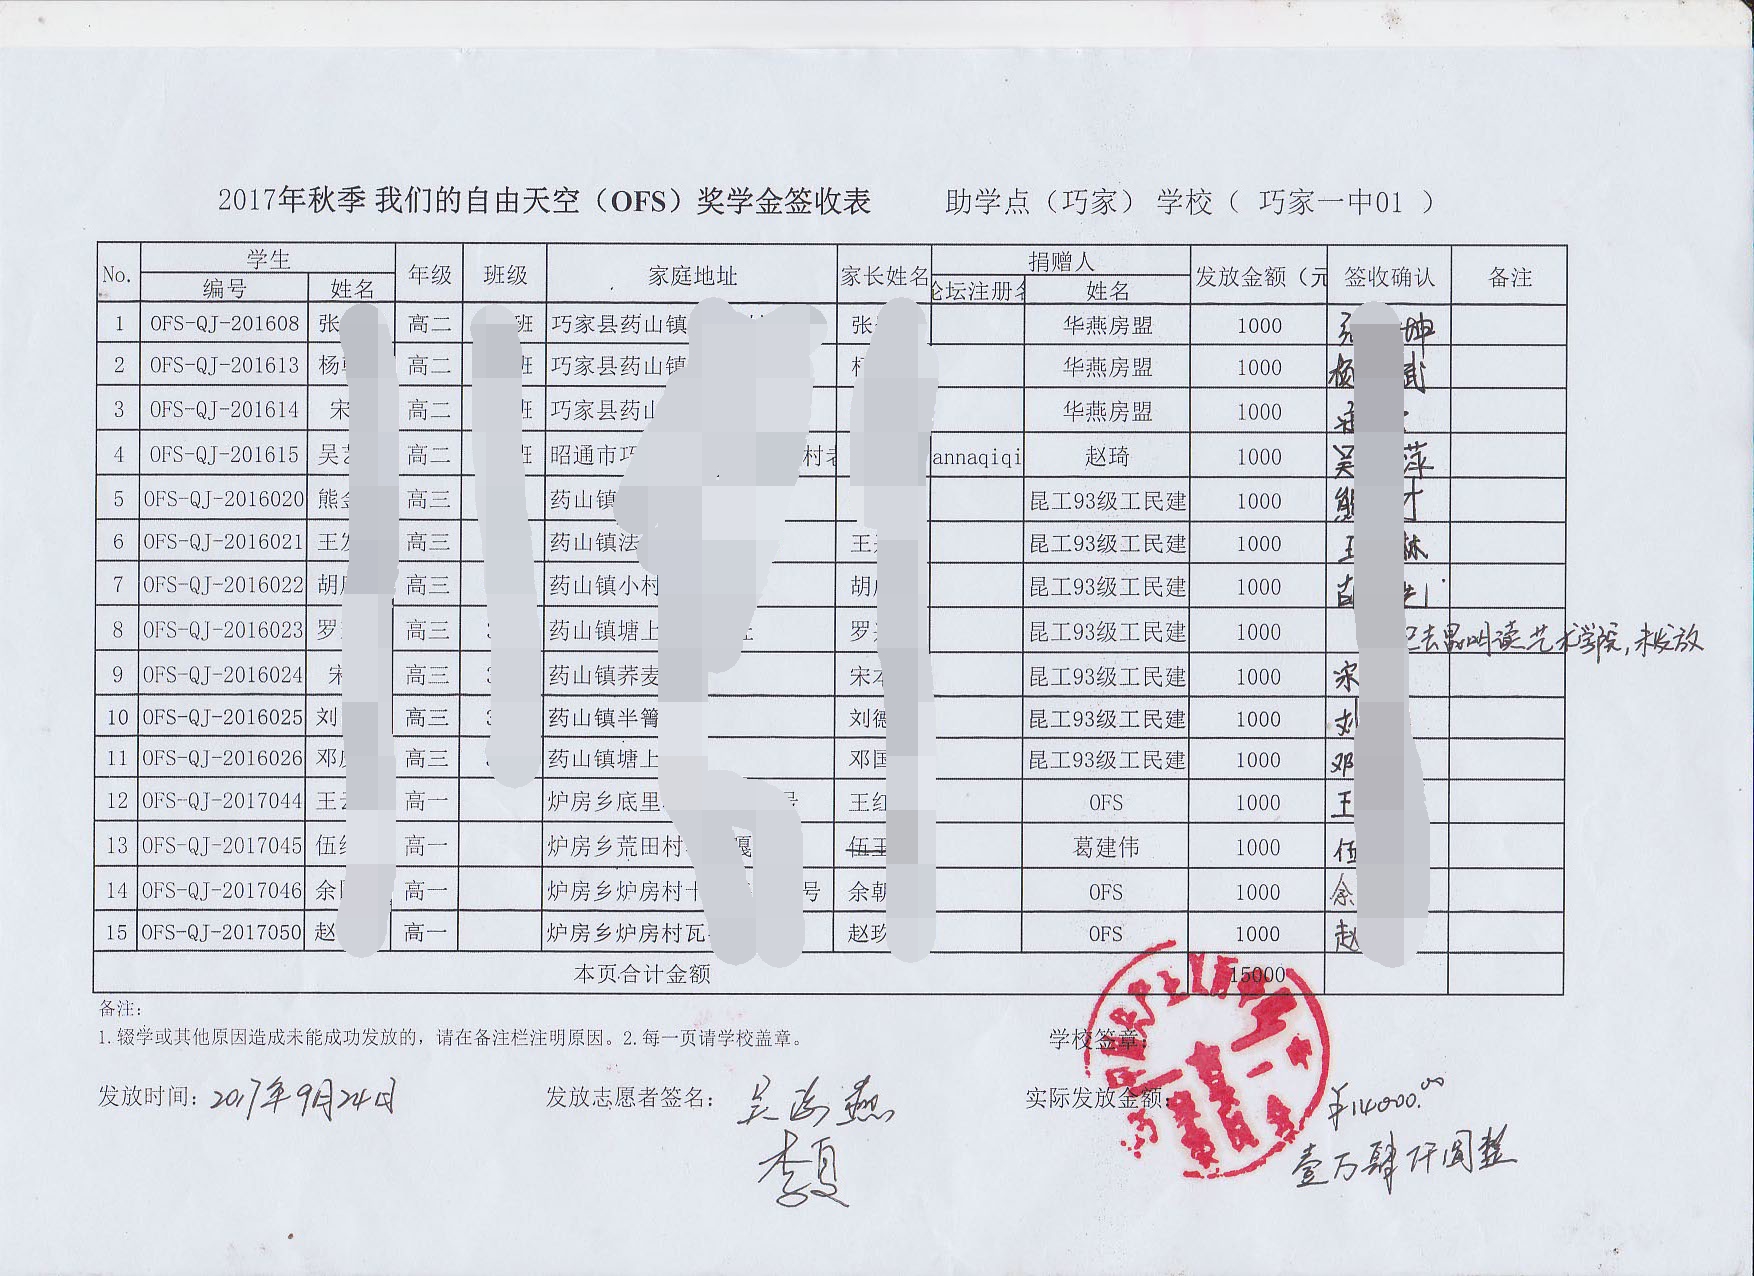 2017年秋季 我们的自由天空（OFS）奖学金签收表 助学点（巧家） 学校（ 巧家一中01 ）
No. 学生 年级 班级 家庭地址 家长姓名 捐赠人 发放金额（元 签收确认 备注
编号 姓名 论坛注册名 姓名
1 OFS-QJ-201608 张 高二 班 巧家县药山镇 张 华燕房盟 1000 张 坤
2 OFS-QJ-201613 杨 高二 班 巧家县药山镇 华燕房盟 1000 杨 武
3 OFS-QJ-201614 宋 高二 班 巧家县药山 华燕房盟 1000 宋
4 OFS-QJ-201615 吴 高二 班 昭通市巧 村 annaqiqi 赵琦 1000 吴 萍
5 OFS-QJ-2016020 熊 高三 药山镇 昆工93级工民建 1000 熊 才
6 OFS-QJ-2016021 王 高三 药山镇法 王 昆工93级工民建 1000 王 林
7 OFS-QJ-2016022 胡 高三 药山镇小村 胡 昆工93级工民建 1000
8 OFS-QJ-2016023 罗 高三 3 药山镇塘上 罗 昆工93级工民建 1000 去昆明读艺术学院，未发放
9 OFS-QJ-2016024 宋 高三 3 药山镇荞麦 宋本 昆工93级工民建 1000 宋
10 OFS-QJ-2016025 刘 高三 3 药山镇半箐 刘德 昆工93级工民建 1000 刘
11 OFS-QJ-2016026 邓 高三 药山镇塘上 邓国 昆工93级工民建 1000 邓
12 OFS-QJ-2017044 王 高一 炉房乡底里 号 王红 OFS 1000 王
13 OFS-QJ-2017045 伍 高一 炉房乡荒田村 嘎 伍王 葛建伟 1000 伍
14 OFS-QJ-2017046 余 高一 炉房乡炉房村 号 余朝 OFS 1000 余
15 OFS-QJ-2017050 赵 高一 炉房乡炉房村瓦 赵玖 OFS 1000 赵
本页合计金额 15000
备注：
1.辍学或其他原因造成未能成功发放的，请在备注栏注明原因。2.每一页请学校盖章。 学校签章：
发放时间：2017年9月24日 发放志愿者签名：吴 燕 实际发放金额：¥14000.00
李夏 壹万肆仟圆整